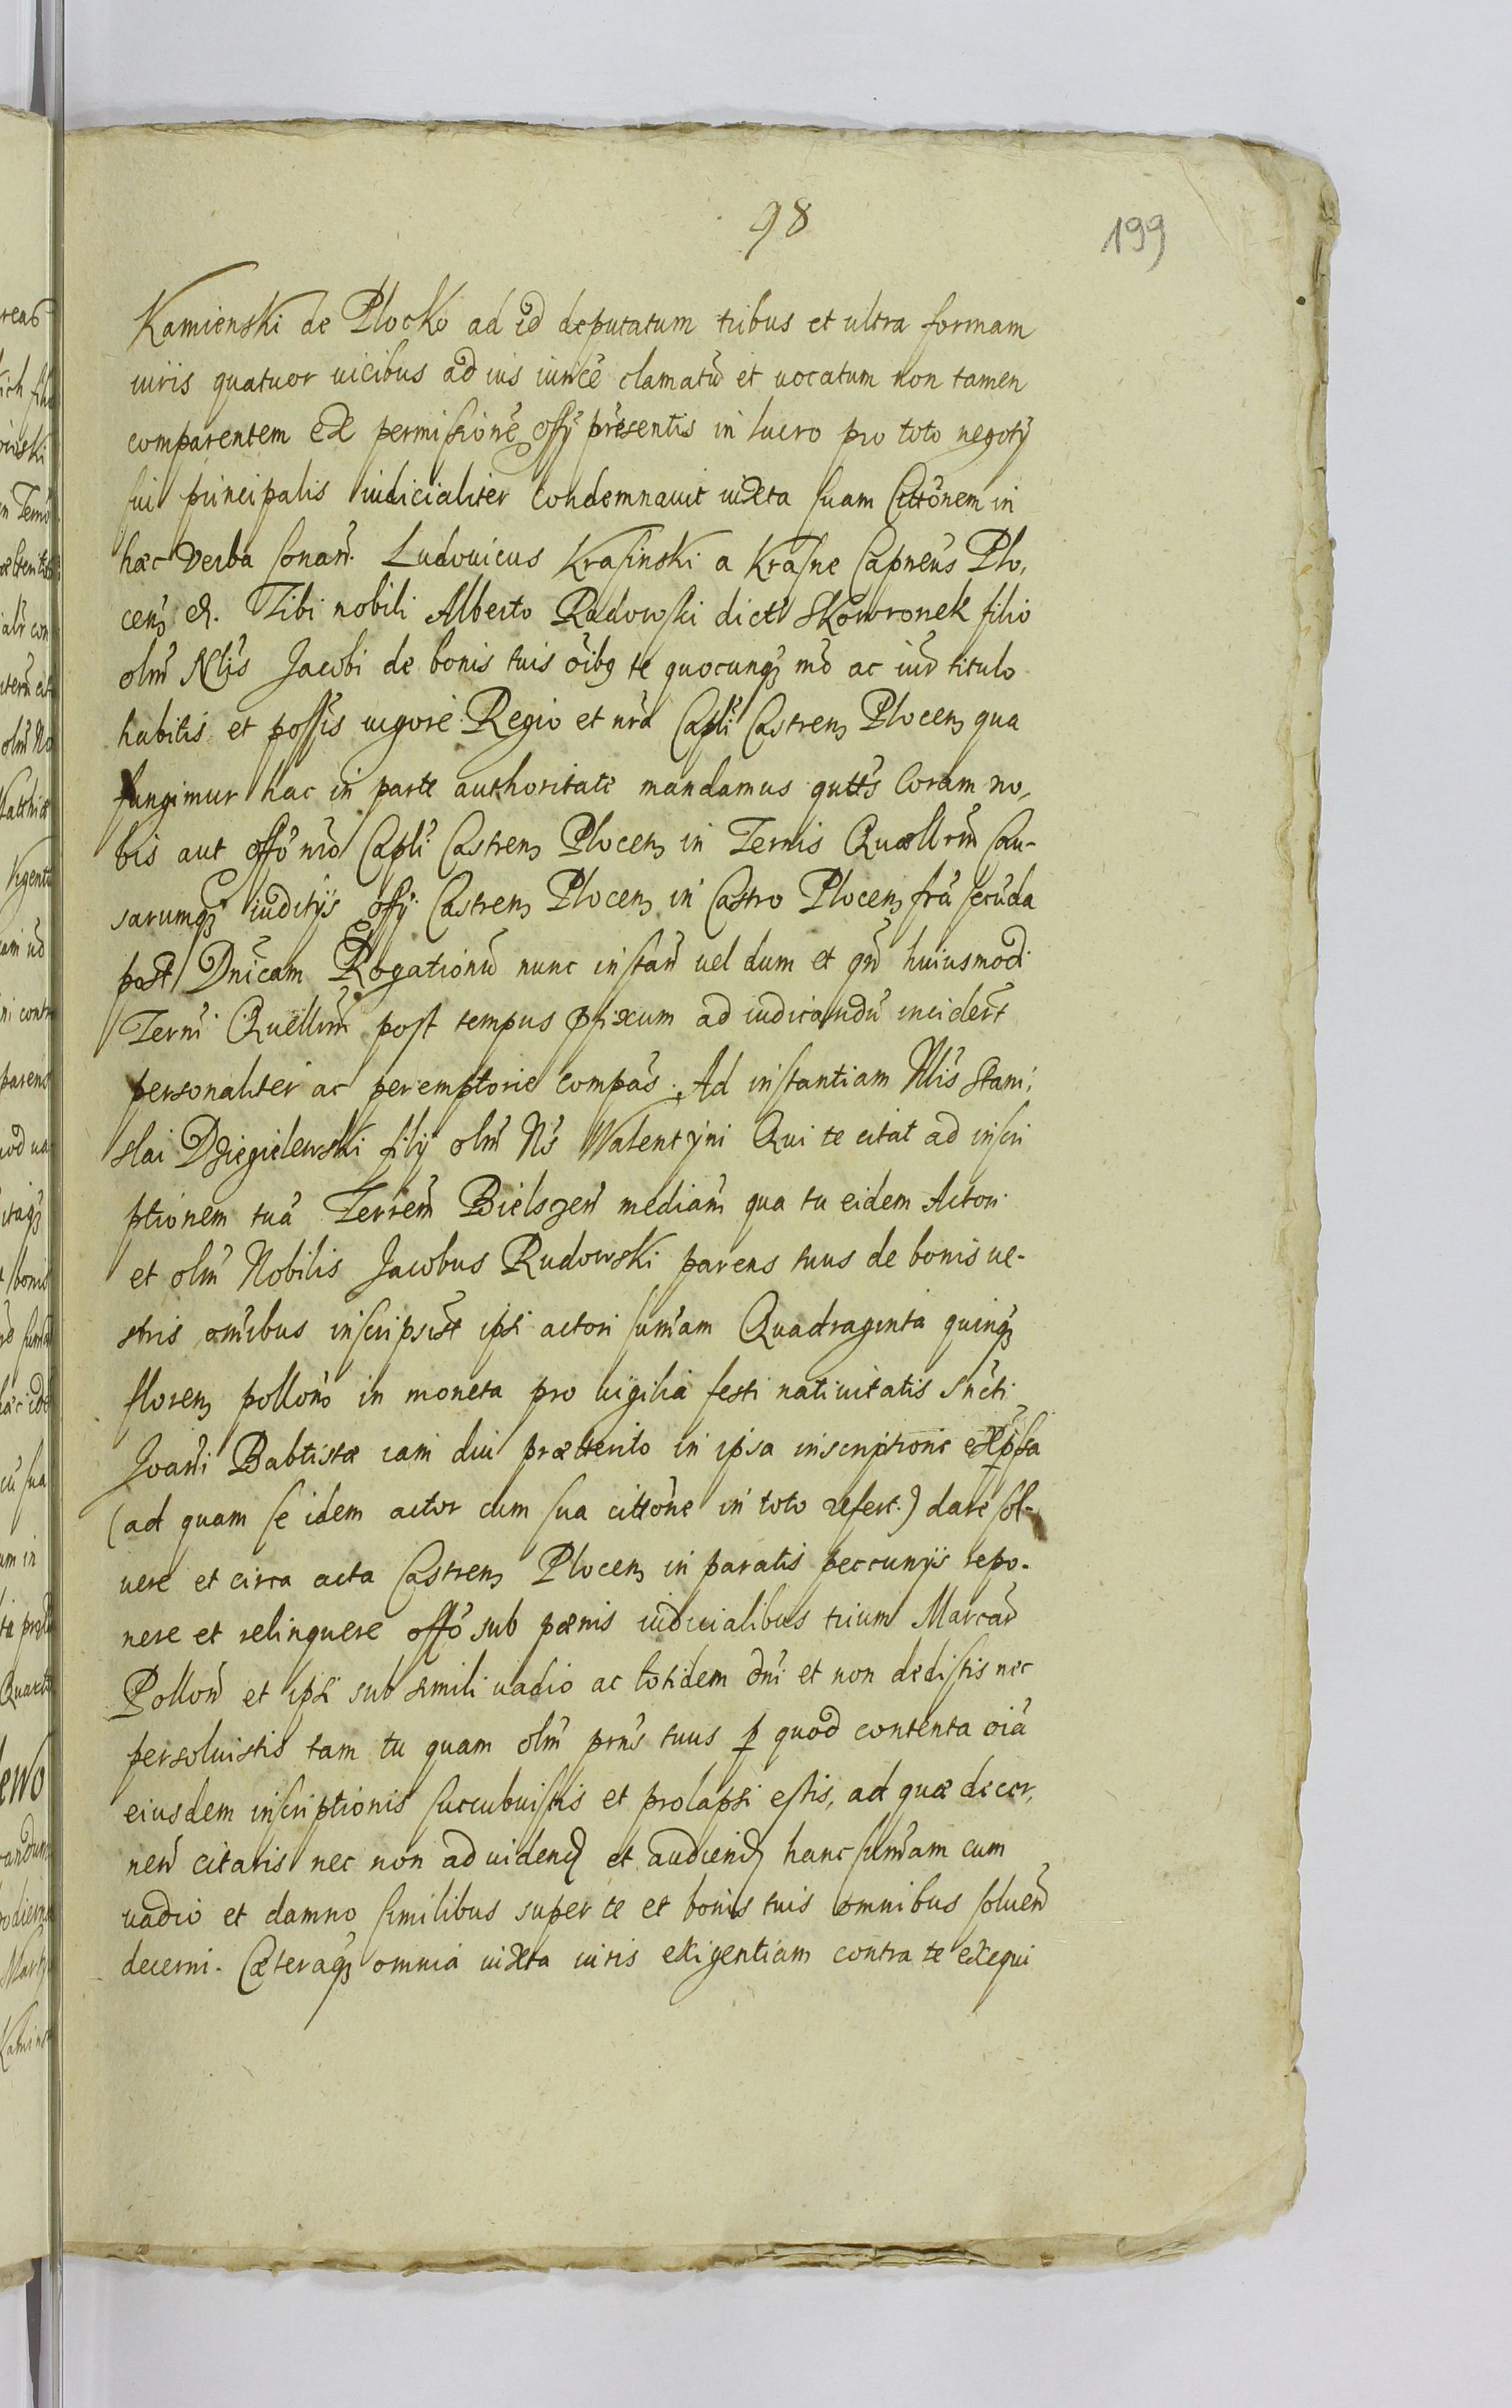 98
199
Kamienski de Plocko ad id deputatum tribus et ultra formam
iuris quatuor uicibus ad ius iurice clamatū et uocatum non tamen
comparentem ex permissione offŷ præsentis in lucro pro toto negotÿ
sui principalis iudicialiter condemnauit iuxta suam Cittōnem in
hæc verba sonañ. Ludouicus Krasinski a Krasne Capneus Plo,
ceñ &. Tibi nobili Alberto Rudowski dicto Skowronek filio
olm̄ Nlis Jacobi de bonis tuis oībq te quocunq mō ac iur titulo
habitis et possis uigore Regio et nrā Capli Castren Plocen qua
fungimur hac in parte authoritate mandamus qutts Coram no,
bis aut offō nrō Capli Castren Plocen in Ternis Quællrm̄ Cau-
sarumq iuditÿs offÿ Castren Plocen in Castro Plocen frā secūda
post Dnīcam Rogationū nunc instañ uel dum et qñ huiusmodi
Termī Quellrm̄ post tempus pfixum ad iudicandū inciderīt
personaliter ac peremptorie compās. Ad instantiam Nlis Stani,
slai Dziegielewski filÿ olm̄ Ns Walentÿni Qui te citat ad inscri
ptionem tuā Terrem̄ Bielszeñ mediam̄ qua tu eidem Actori
et olm̄ Nobilis Jacobus Rudowski parens tuus de bonis ue-
stris om̄ibus inscripsist ipsi actori sum̄am Quadraginta quinq
floren pollonō in moneta pro uigilia festi natiuitatis snc̄ti
Joañi Babtistæ iam diu præterito in ipsa inscriptione expssa
(ad quam se idem actor cum sua cittōne in toto refert.) dare sol-
uere et circa acta Castren Plocen in paratis peccunÿs repo-
nere et relinquere offō sub pœnis iudicialibus trium Marcar̄
Polloñ et ipsi sub simili uadio ac totidem dm̄i et non dedistis nec
persoluistis tam tu quam olm̄ prns tuus p quod contenta oīa
eiusdem inscriptionis succubuistis et prolapsi estis, ad quæ decer,
neñ citaris nec non ad uidend et audiend hanc sum̄am cum
uadio et damno similibus super te et bonis tuis omnibus solueñ
decerni. Cæteraq omnia iuxta iuris exigentiam contra te exequi